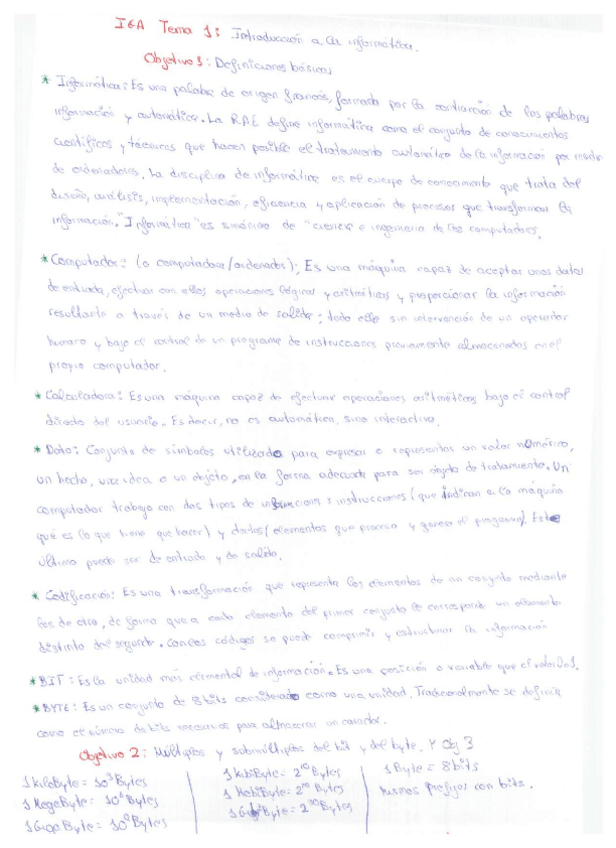 IEA Tema 1: Introducción a la informática.
Objetivo 1: Definiciones básicas
* Informática: Es una palabra de origen francés, formada por la contracción de las palabras
información y automática. La RAE define informática como el conjunto de conocimientos
científicos y técnicas que hacen posible el tratamiento automático de la información por medio
de ordenadores. La disciplina de informática es el cuerpo de conocimiento que trata del
diseño, análisis, implementación, eficiencia y aplicación de procesos que transforman la
información. "Informática" es sinónimo de "ciencia e ingeniería de los computadores.
* Computador: (o computadora/ordenador); Es una máquina capaz de aceptar unos datos
de entrada, efectuar con ellos operaciones lógicas y aritméticas y proporcionar la información
resultante a través de un medio de salida; todo ello sin intervención de un operador
humano y bajo el control de un programa de instrucciones previamente almacenados en el
propio computador.
* Calculadora: Es una máquina capaz de efectuar operaciones aritméticas bajo el control
directo del usuario. Es decir, no es automática, sino interactiva.
* Dato: Conjunto de símbolos utilizado para expresar o representar un valor numérico,
un hecho, una idea o un objeto, en la forma adecuada para ser objeto de tratamiento. Un
computador trabaja con dos tipos de informacion: instrucciones (que indican a la máquina
qué es lo que tiene que hacer) y datos (elementos que procesa y genera el programa). Este
último puede ser de entrada y de salida.
* Codificación: Es una transformación que representa los elementos de un conjunto mediante
los de otro, de forma que a cada elemento del primer conjunto le corresponde un elemento
distinto del segundo. Con los códigos se puede comprimir y estructurar la información
* BIT: Es la unidad más elemental de información. Es una posición o variable que el valor 0 o 1.
* BYTE: Es un conjunto de 8 bits considerado como una unidad. Tradicionalmente se definía
como el número de bits necesarios para almacenar un caracter.
Objetivo 2: Múltiplos y submúltiplos del bit y del byte. Y Obj 3
1 KiloByte = 10³ Bytes
1 MegaByte = 10⁶ Bytes
1 GigaByte = 10⁹ Bytes
1 KibiByte = 2¹⁰ Bytes
1 MebiByte = Bytes
1 = Bytes
1 Byte = 8 bits
mismos prefijos con bits.